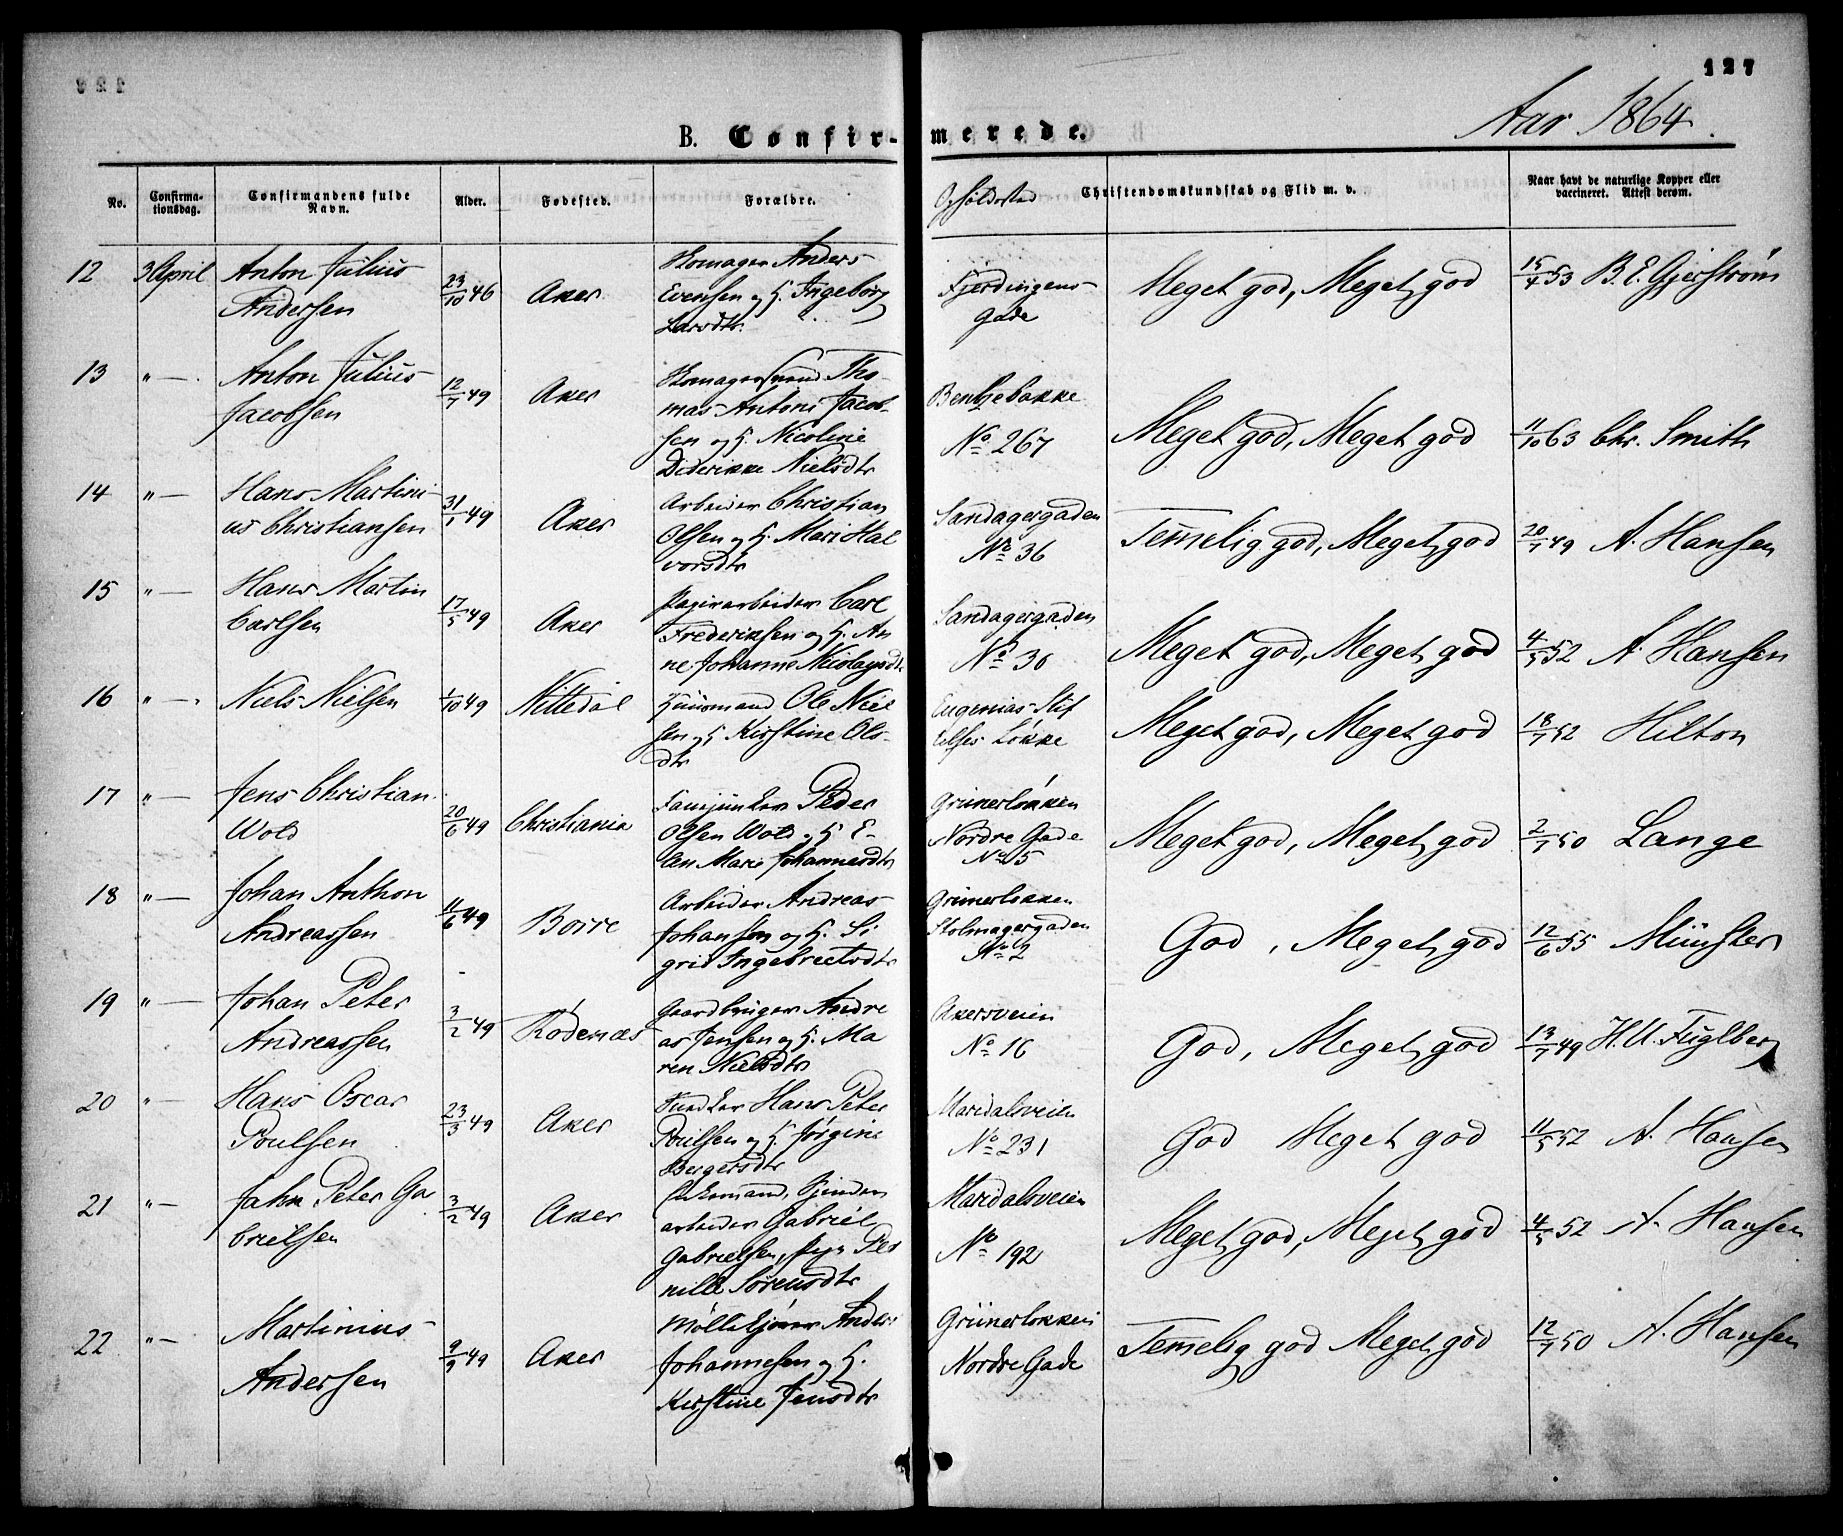 127
Aar 1864.
B. Confir-merede.
No. Confirma-tionsdag. Confirmandens fulde Navn. Alder. Fødested. Forældre. Opholdssted Christendomskundskab og Flid m. v. Naar havt de naturlige Kopper eller vaccineret. Attest derom.
12 3 April Anton Julius 23/10 46 Aker Skomager Anders Fjerdingens- Meget god, Meget god 15/4 53 B. E. Gjerstrøm
Andersen Evensen og H. Ingeborg Gade
Larsdtr.
13 " — Anton Julius 12/7 49 Aker Skomagersvend Tho- Bentzebakke Meget god, Meget god 11/10 63 Chr. Smith
Jacobsen mas Antoni Jacob- No 267
sen og H. Nicoline
Diderikke Nielsdtr
14 " — Hans Martini- 31/1 49 Aker Arbeider Christian Sandagergaden Temelig god, Meget god 20/7 49 A. Hansen
us Christiansen Olsen og H. Mari Hal No 36
vorsdtr
15 " — Hans Martin 17/5 49 Aker Papirarbeider Carl Sandagergaden Meget god, Meget god 4/5 52 A. Hansen
Carlsen Frederiksen og H. An No 36
ne Johanne Nicolaysdtr
16 " — Niels Nielsen 1/10 49 Nittedal Huusmand Ole Niel Eugenias Stif Meget god, Meget god 18/7 52 Hilton
sen og H Kirstine Ols- telses Løkke
dtr
17 " — Jens Christian 20/6 49 Christiania Peder Grünerløkken Meget god, Meget god 2/7 50 Lange
Wold Olsen Wold og H E- Nordre Gade
len Marie Johannesdtr No 5
18 " — Johan Anthon 11/6 49 Borre Arbeider Andreas Grünerløkken God, Meget god 12/6 55 Münster
Andreassen Johansen og H. Si Stolmagergaden
grid Ingebretsdtr No 2
19 " — Johan Peter 3/2 49 Rødenæs Gaardbruger Andre Akersveien God, Meget god 13/7 49 H. U. Fuglberg
Andreassen as Jensen og H. Ma No 16
ren Nielsdtr
20 " — Hans Oscar 23/3 49 Aker Hans Peter Maridalsveien God Meget god 11/5 52 A. Hansen
Poulsen Poulsen og H. Jørgine No 231
Bergersdtr
21 " — Jahn Peter Ga 3/2 49 Aker Maridalsveien Meget god, Meget god 4/5 52 A. Hansen
brielsen arbeider Gabriel No 192
Gabrielsen, Pige Per
nille Sørensdtr
22 " — Martinius 9/9 49 Aker Møllekjører Anders Grünerløkken Temelig god Meget god 12/7 50 A. Hansen
Andersen Johannesen og H. Nordre Gade
Kirstine Jensdtr